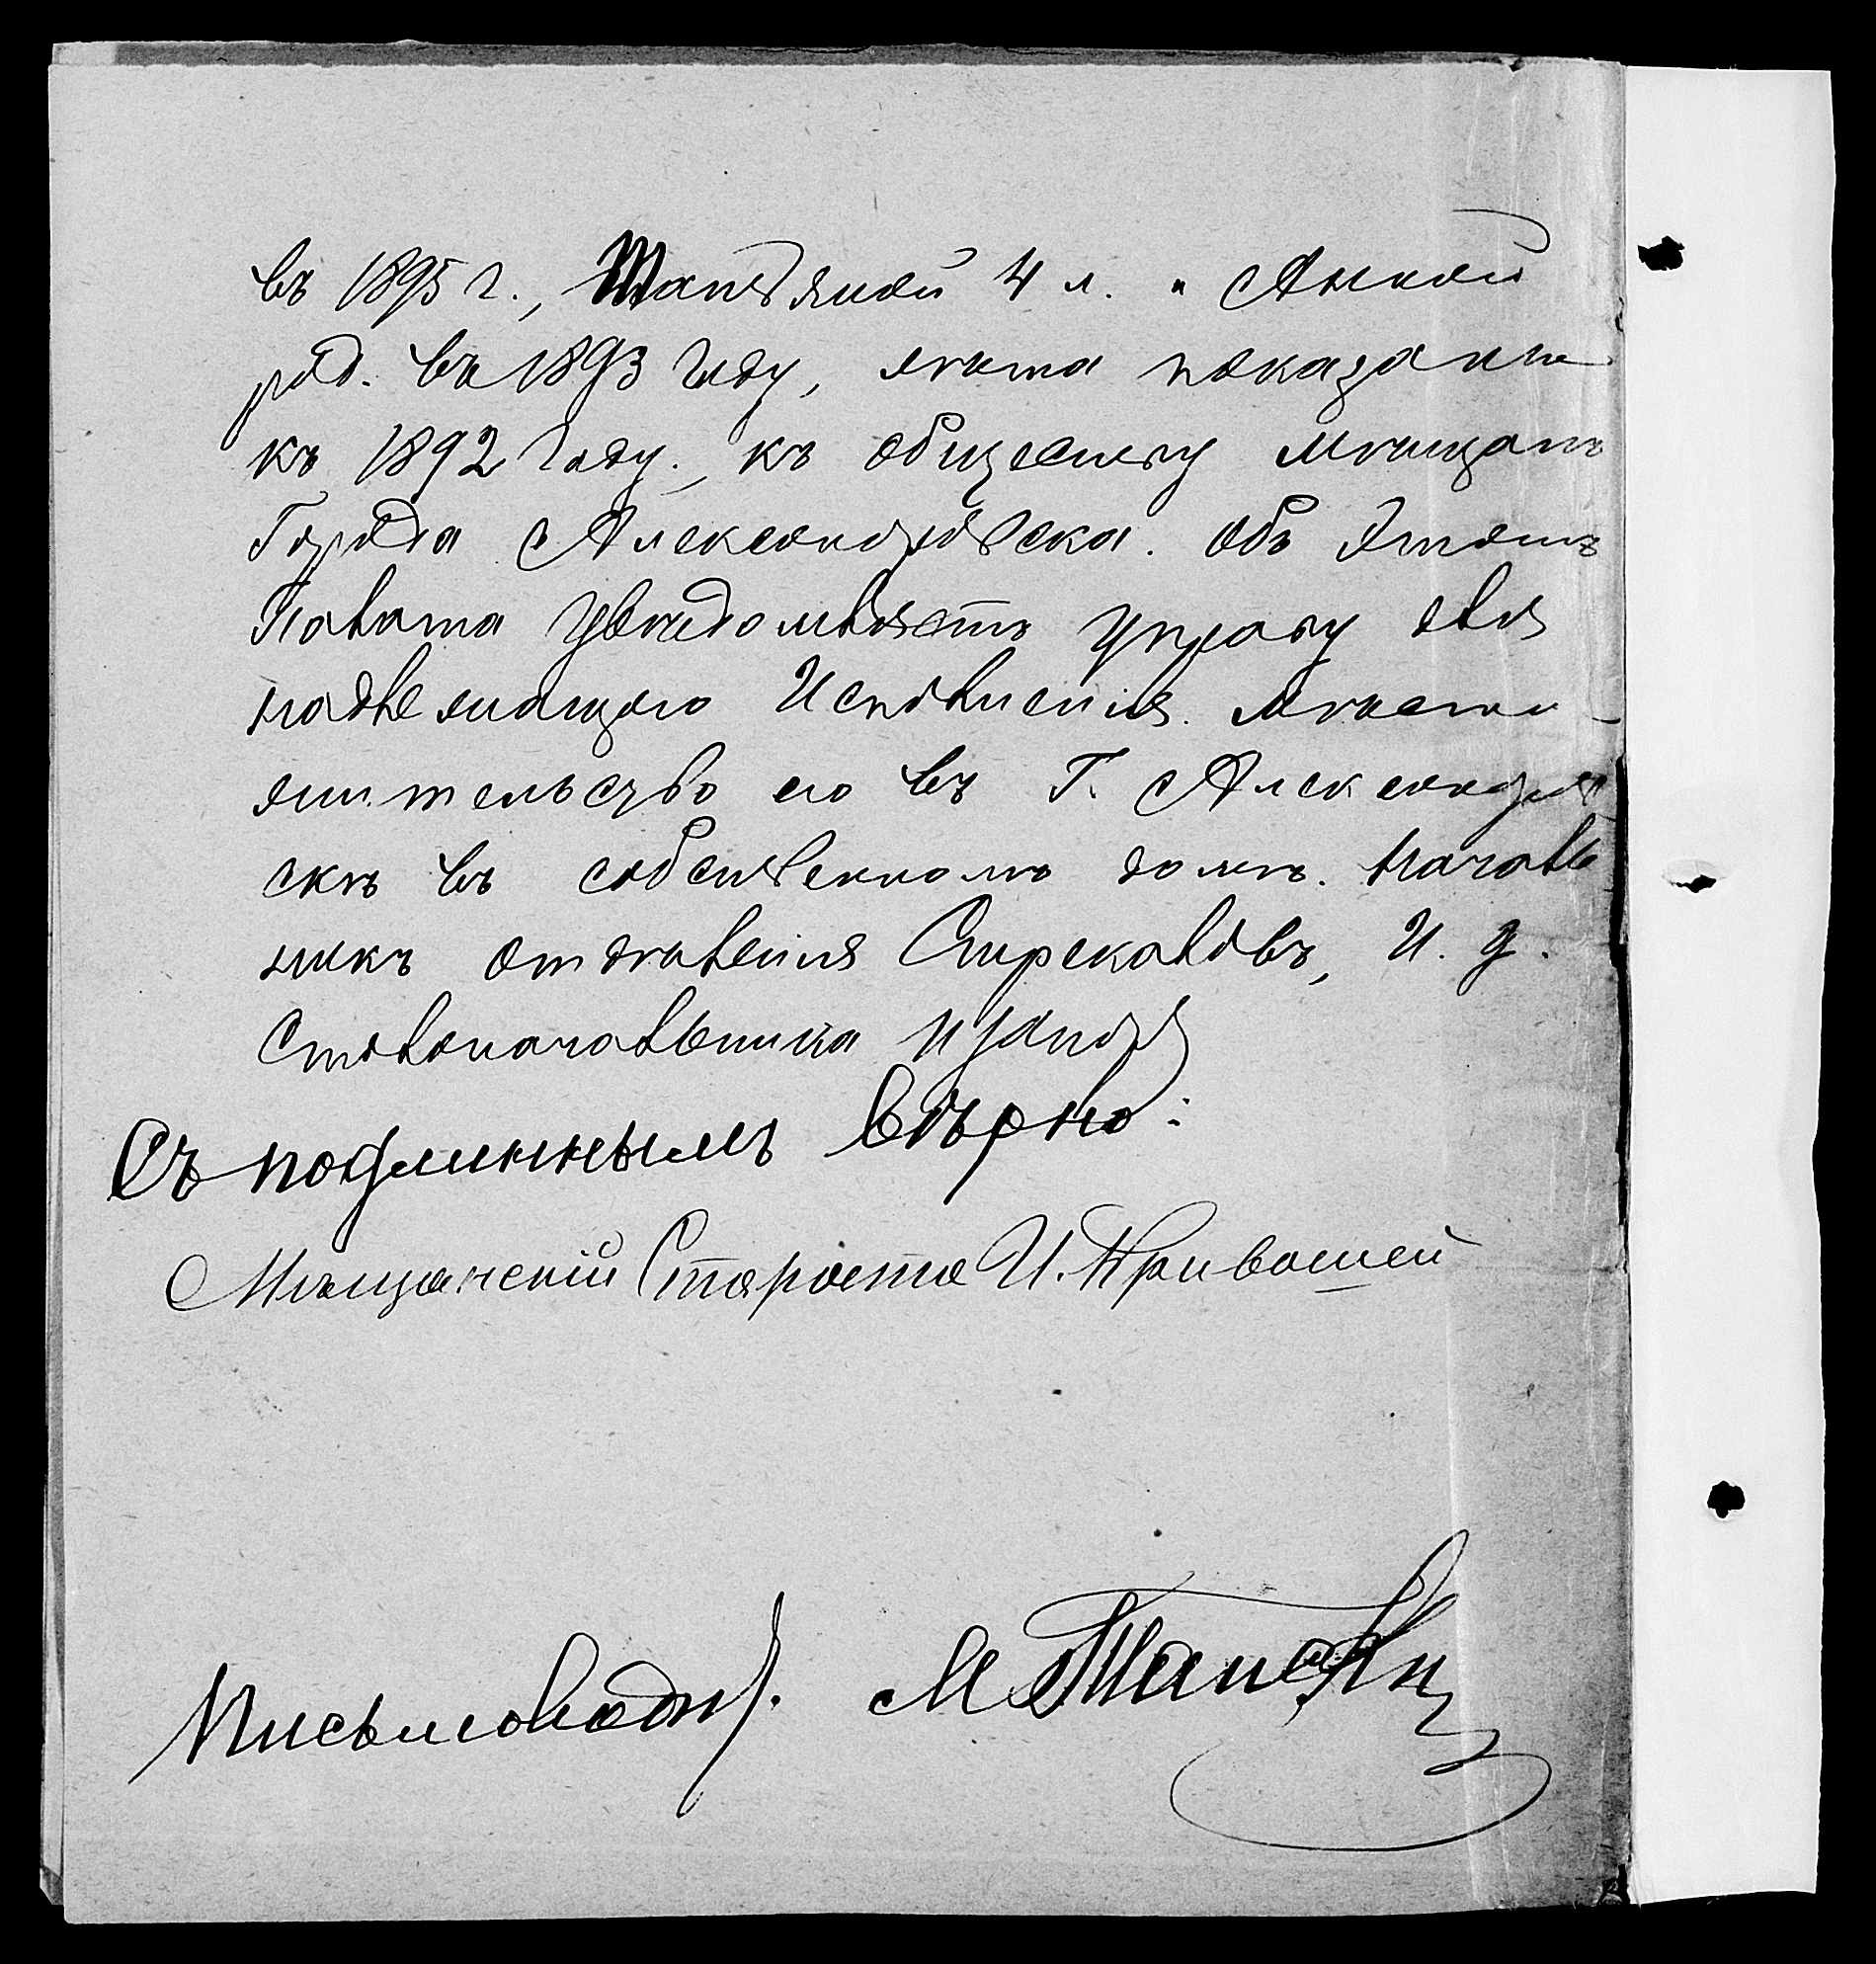 въ 1895 г., Татьяной 4 л. и Анной
род. въ 1893 году, лѣта показаны
къ 1892 году, къ обществу мѣщанъ
Города Александровска. Объ этомъ
Палата увѣдомляетъ управу для
надлежащаго Исполненія. Мѣсто-
жительство его въ Г. Александров
скѣ въ собственномъ домѣ. Началь
никъ отдѣленія Стрекаловъ, И. д.
Столоначальника
Съ подлиннымъ вѣрно:
Мѣщанскій Староста И. Кривошей
Письмоводит. М